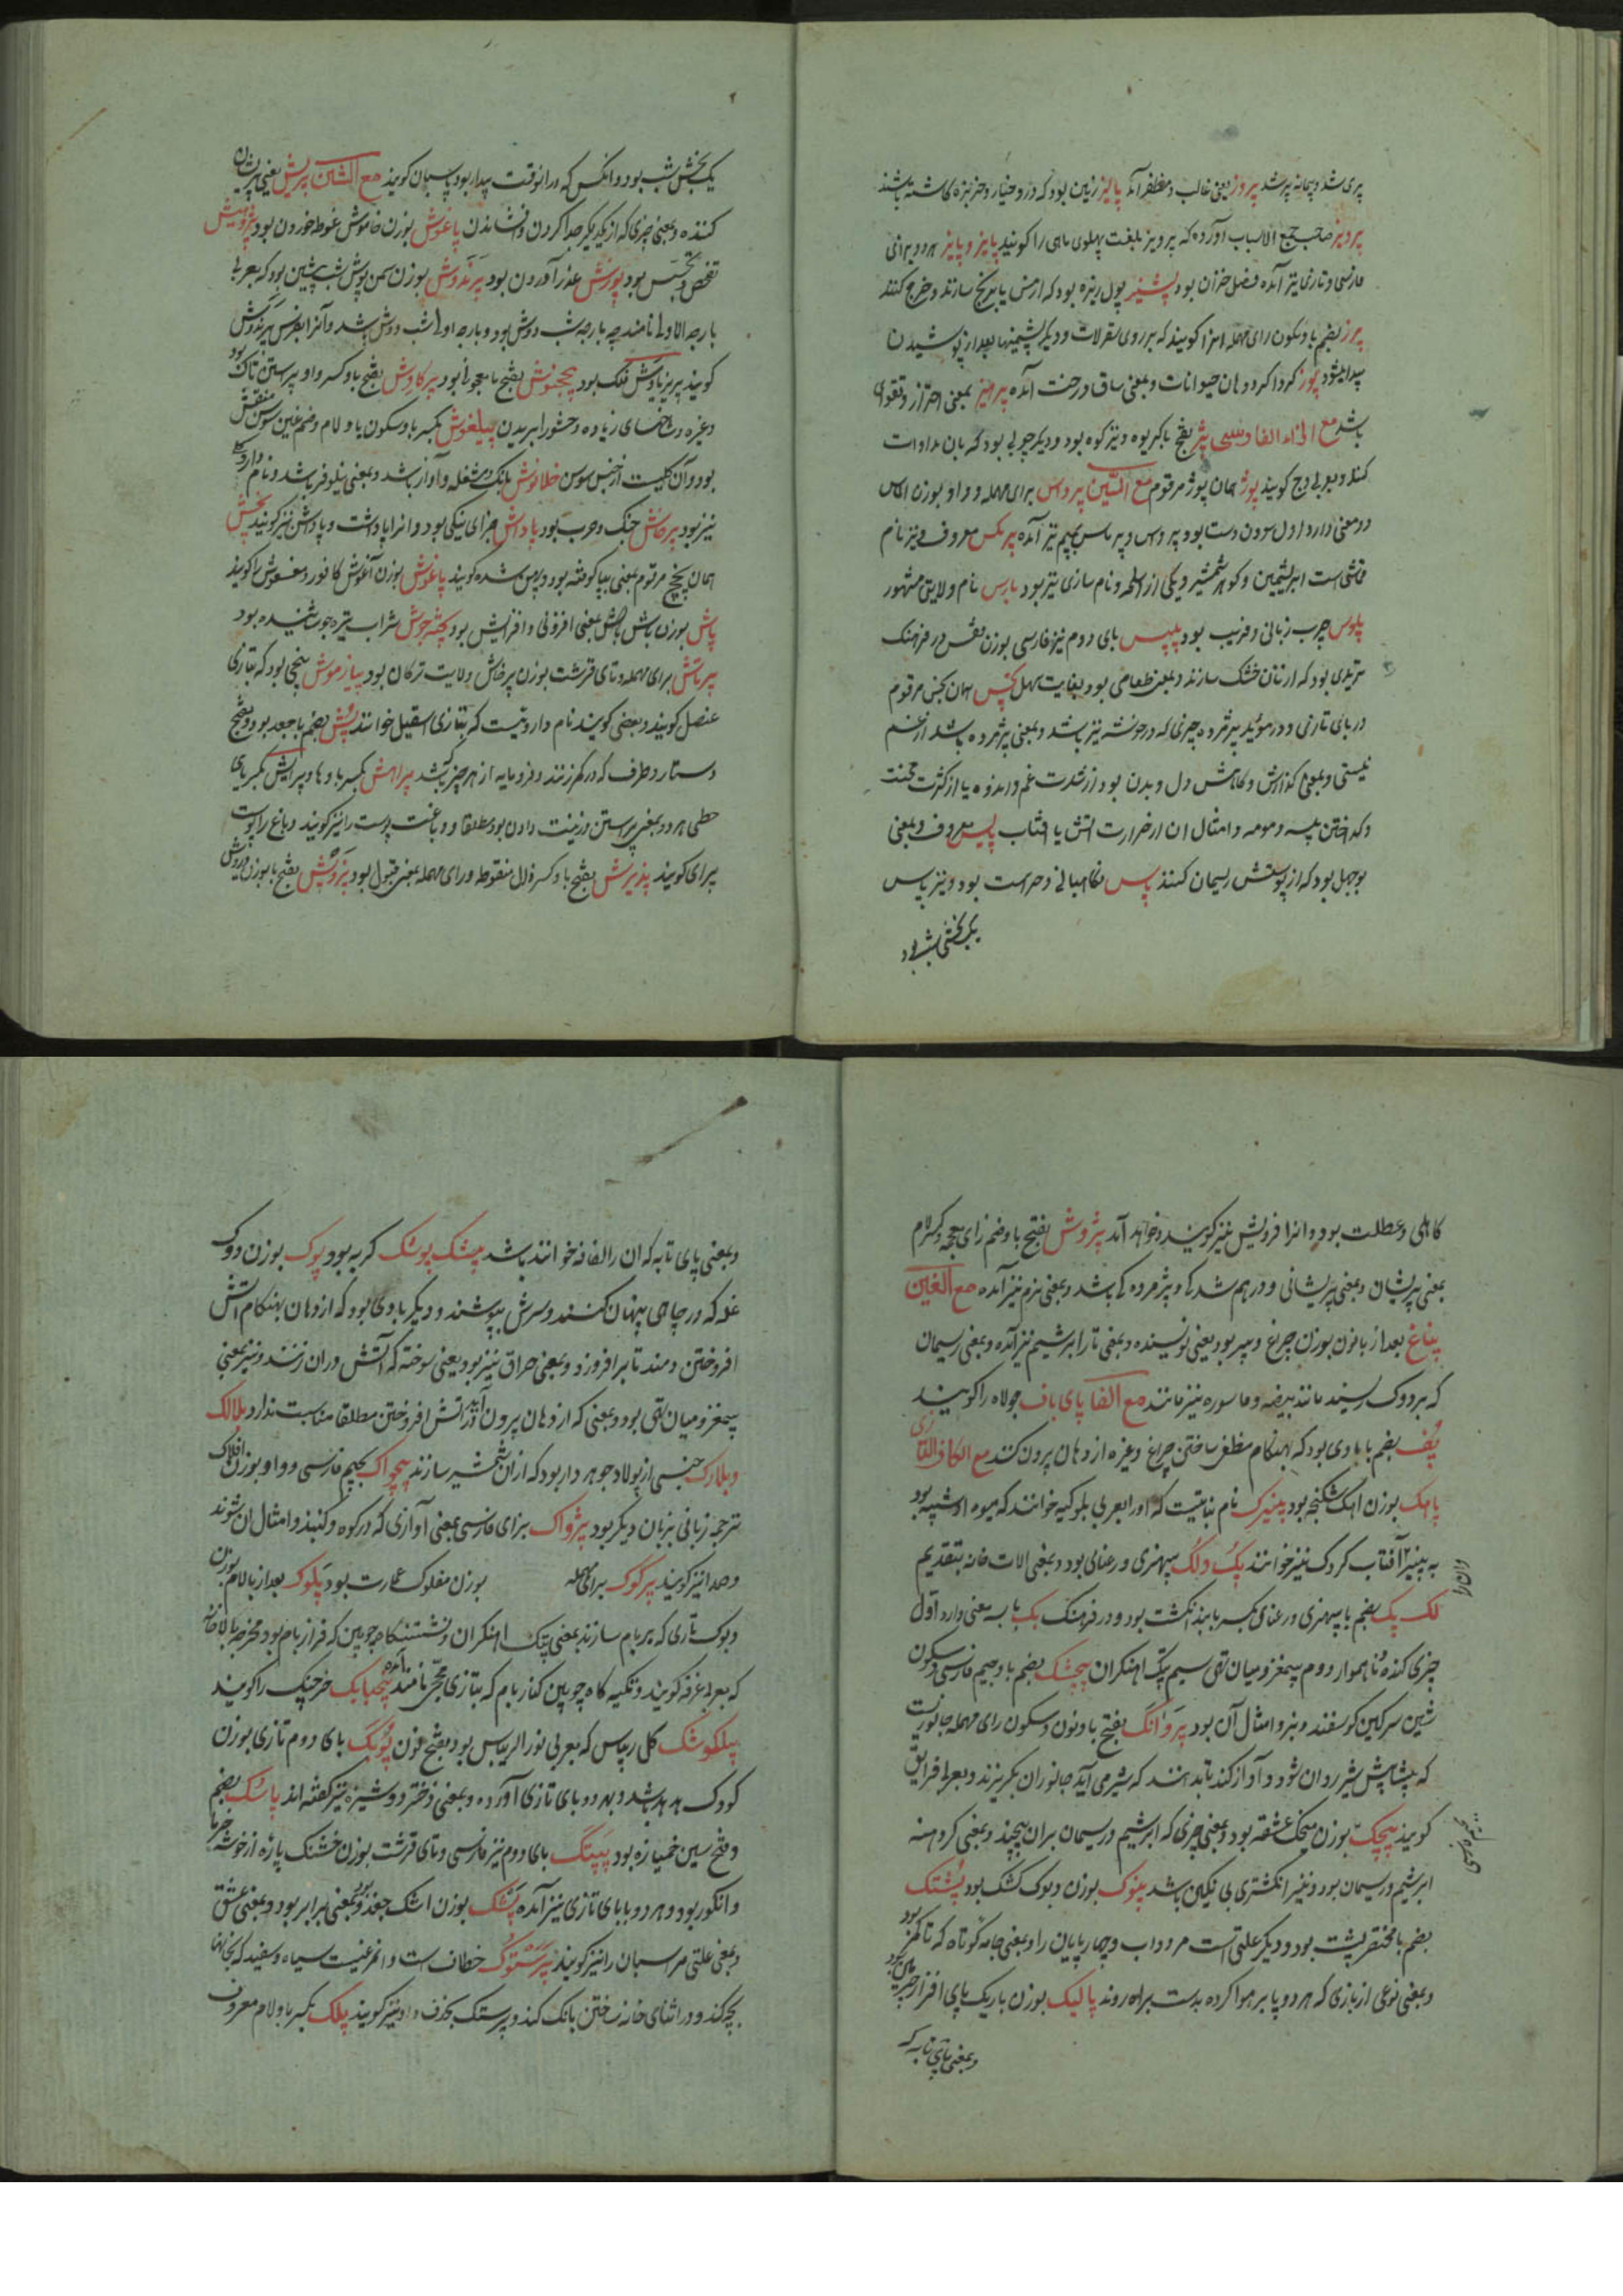 پری شد و پیمانه پر شد پیروز یعنی غالب و مظفر آمد پالیز زمین بود که درو خیار و خربزه کاشته باشند
پرویز صاحب جمع الالباب آورده که پرویز بلغت پهلوی ماهی را کویند پاییز و پاییز هر دو برای
فارسی و تازی نیز آمده فصل خزان بود پشیز پول ریزه بود که از مس یا برنج سازند و خرج کنند
پرز بضم با و سکون رای مهمله انرا کویند که بر روی سقرلات و دیکر پشمینها بعد از پوشیدن
پیدا میشود پوز کردا کرد دهان حیوانات و بمعنی ساق درخت آمده پرهیز بمعنی احتراز و تقوی
باشد مع الزاء الفارسی پژ بفتح با کریوه و نیز کوه بود و دیکر چوبی بود که بان مداوات
کنند و بعربی وج کویند پوژ همان پوز مرقوم مع السین پرواس برای مهمله و واو بوزن الماس
دو معنی دارد اول سودن دست بود پرواس و پرماس بمیم نیز آمده پرکس معروف و نیز نام
نقشی است ابریشمین و کوهر شمشیر و یکی از اسلحه و نام سازی نیز بود پارس نام ولایتی مشهور
پلوس چرب زبانی و فریب بود پیپس بای دوم نیز فارسی بوزن نفس در فرهنک
تریدی بود که از نان خشک سازند و بمعنی طعامی بود بغایت سهل پخس همان بخس مرقوم
در بای تازی و در مؤید پژمرده چیزی که در خوشه نیز باشد و بمعنی پژمرده باشد از غم
نیستی و بمعنی کدازش و کاهش دل و بدن بود از شدت غم و اندوه یا از کثرت محنت
و کداختن پیه و مومه و امثال ان از حرارت اتش یا افتاب پلیس معروف و بمعنی
بوجهل بود که از پوستش ریسمان کنند پاس نکاهبانی و حراست بود و نیز پاس
یک بخشی شب بود
یک بخش شب بود و انکس که در انوقت بیدار بود پاسبان کویند مع الشین پریش یعنی پریشان
کننده و بمعنی چیزی که از یکدیکر جدا کردن و افشاندن پاغوش بوزن خاموش غوطه خوردن بود پژوهش
تفحص و تجسس بود پوزش عذر آوردن بود پرندوش بوزن سمن پوش شب پیشین بود که بعربی
بارحه الاولی نامند چه بارحه شب دوش بود و بارحه اولی شب دوش باشد و آنرا بفرس پرندوش
کویند پریزناوش فلک بود پجخش بفتح با بود پرکاوش بفتح با و کسر واو پیراستن تاک بود
و غیره و شاخهای زیاده و حشو را بریدن پیلغوش بکسر با و سکون یا و لام و ضم غین سوسن منقش
بود و آن کلیست از جنس سوسن خلالوش بانک و مشغله و آواز باشد و بمعنی نیلوفر باشد و نام داروی
نیز بود پرخاش جنک و حرب بود پاداش جزای نیکی بود و انرا پاداشت و پاداشن نیز کویند پخش
همان پخچ مرقوم بمعنی بپا کوفته بود و پهن شده کویند پاغوش بوزن آغوش کافور مغسوش را کویند
پاش بوزن باش پاشش بمعنی افزونی و افزایش بود پخته جوش شراب تیره جوشیده بود
پرتاش برای مهمله و تای قرشت بوزن پرخاش ولایت ترکان بود پیاز موش بیخی بود که بتازی
عنصل کویند و بعضی کویند نام دارویست که بتازی اسقیل خوانند پش بضم با جعد بود و بفتح
دستار و طرف که در کمر زنند و فرومایه از هر چیز باشد پیراهش بکسر با و ها و پیرایش بکسر یای
حطی هر دو بمعنی پیراستن و زینت دادن بود مطلقا و دباغت پوست را نیز کویند و باغ را پوست
پیرای کویند پذیرش بفتح با و کسر ذال منقوطه و رای مهمله بمعنی قبول بود پژوش بفتح با بوزن درویش
کاهلی و عطلت بود و انرا فرویش نیز کویند و خواهد آمد پژوش بفتح با و ضم زای معجمه و کسر لام
بمعنی پریشان و بمعنی پریشانی و درهم شدکی و پژمرده کی باشد و بمعنی نرم نیز آمده مع الغین
پناغ بعد از با نون بوزن چراغ دبیر بود یعنی نویسنده و بمعنی تار ابریشم نیز آمده و بمعنی ریسمان
که بر دوک رسیند مانند بیضه و ماسوره نیز مانند مع الفا پای باف جولاه را کویند
پف بضم با بادی بود که بهنکام مطفی ساختن چراغ و غیره از دهان بیرون کنند مع الکاف التازی
پاهک بوزن اهک شکنجه بود پنیرک نام نباتیست که او را بعربی ملوکیه خوانند که میوه او شبیه بود
به پنیر آفتاب کردک نیز خوانند پک و لک بیهنری و رعنایی بود و بمعنی الات خانه بتقدیم
لک پک بضم با بیهنری و رعنائی بکسر با بند انکشت بود و در فرهنک پک با سه معنی دارد اول
چیزی کنده و ناهموار دوم بیمغز و میان تهی سیم پتک اهنکران پچشک بضم با و جیم فارسی و سکون
شین سرکین کوسفند و بز و امثال آن بود پروانک بفتح با و نون و سکون رای مهمله جانوریست
که پیشاپیش شیر روان شود و آواز کند تا بدانند که شیر می آید جانوران بکریزند و بعربی فرانق
کویند پیچک بوزن میخک عشقه بود و بمعنی چیزی که ابریشم و ریسمان بران پیچند و بمعنی کروهه
ابریشم و ریسمان بود و نیز انکشتری بی نکین باشد پنوک بوزن دبوک کشک بود پشتک
بضم با مختصر پشت بود و دیکر علتی است مر دواب و چهار پایان را و بمعنی جامه کوتاه که تا کمر بود
و بمعنی نوعی از بازی که هر دو پا بر هوا کرده بدست براه روند پالیک بوزن باریک پای افزار چرمی بود
و بمعنی پای تابه که
و بمعنی پای تابه که ان را لفافه خوانند باشد پشک پوشک کربه بود پوک بوزن دوک
غله که در چاهی پنهان کنند و سرش بپوشند و دیکر بادی بود که از دهان بهنکام آتش
افروختن دمند تا برافروزد و بمعنی حراق نیز بود یعنی سوخته که آتش دران زنند و نیز بمعنی
بیمغز و میان تهی بود و بمعنی که از دهان بیرون آید در اتش افروختن مطلقا مناسبت ندارد پلالک
و پلارک جنسی از پولاد جوهر دار بود که ازان شمشیر سازند پچواک بجیم فارسی و واو بوزن افلاک
ترجمه زبانی بزبان دیکر بود پژواک بزای فارسی بمعنی آوازی که در کوه و کنبد و امثال ان شنوند
و صدا نیز کویند پرکوک برای مهمله بوزن مفلوک عمارت بود پلوک بعد از با لام بوزن
دبوک تاری که بر بام سازند بمعنی پتک اهنکران و نشستنکاه چوبین که فراز بام بود و مخرجه بالاخانه
که بعربی غرفه کویند و تکیه کاه چوبین کنار بام که بتازی محجر نامند آمده پنجپایک خرچنک را کویند
پلکوشک کلی ریباس که بعربی نور الریباس بود بفتح نون پوپک بای دوم تازی بوزن
کودک هدهد باشد و بهر دو بای تازی آورده و بمعنی دختر دوشیزه نیز کفته اند پاسک بضم
و فتح سین خمیازه بود پیپتک بای دوم نیز فارسی و تای قرشت بوزن خشتک پاره از خوشه خرما
و انکور بود و هر دو با بای تازی نیز آمده پشک بوزن اشک جغد بود و بمعنی برابر بود و بمعنی عشق
و بمعنی علتی مر اسبان را نیز کویند پرستوک خطاف است و ان مرغیست سیاه و سفید که بخانها
بچه کند و در اثنای خانه ساختن بانک کند و پرستک بحذف واو نیز کویند پلک بکسر با و لام معروف